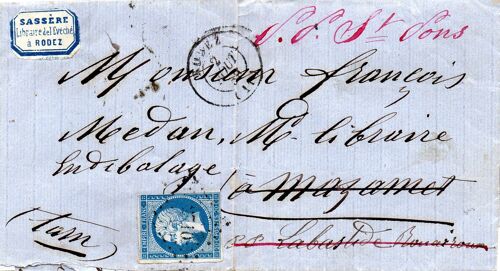 SASSÈRE
Librairie de l'Évêché
à RODEZ
P. P. St Pons
RODEZ
2
Monsieur françois
Medan, Md libraire
En débalage
à mazamet
(tarn)
P.P. Labastide Rouairoux